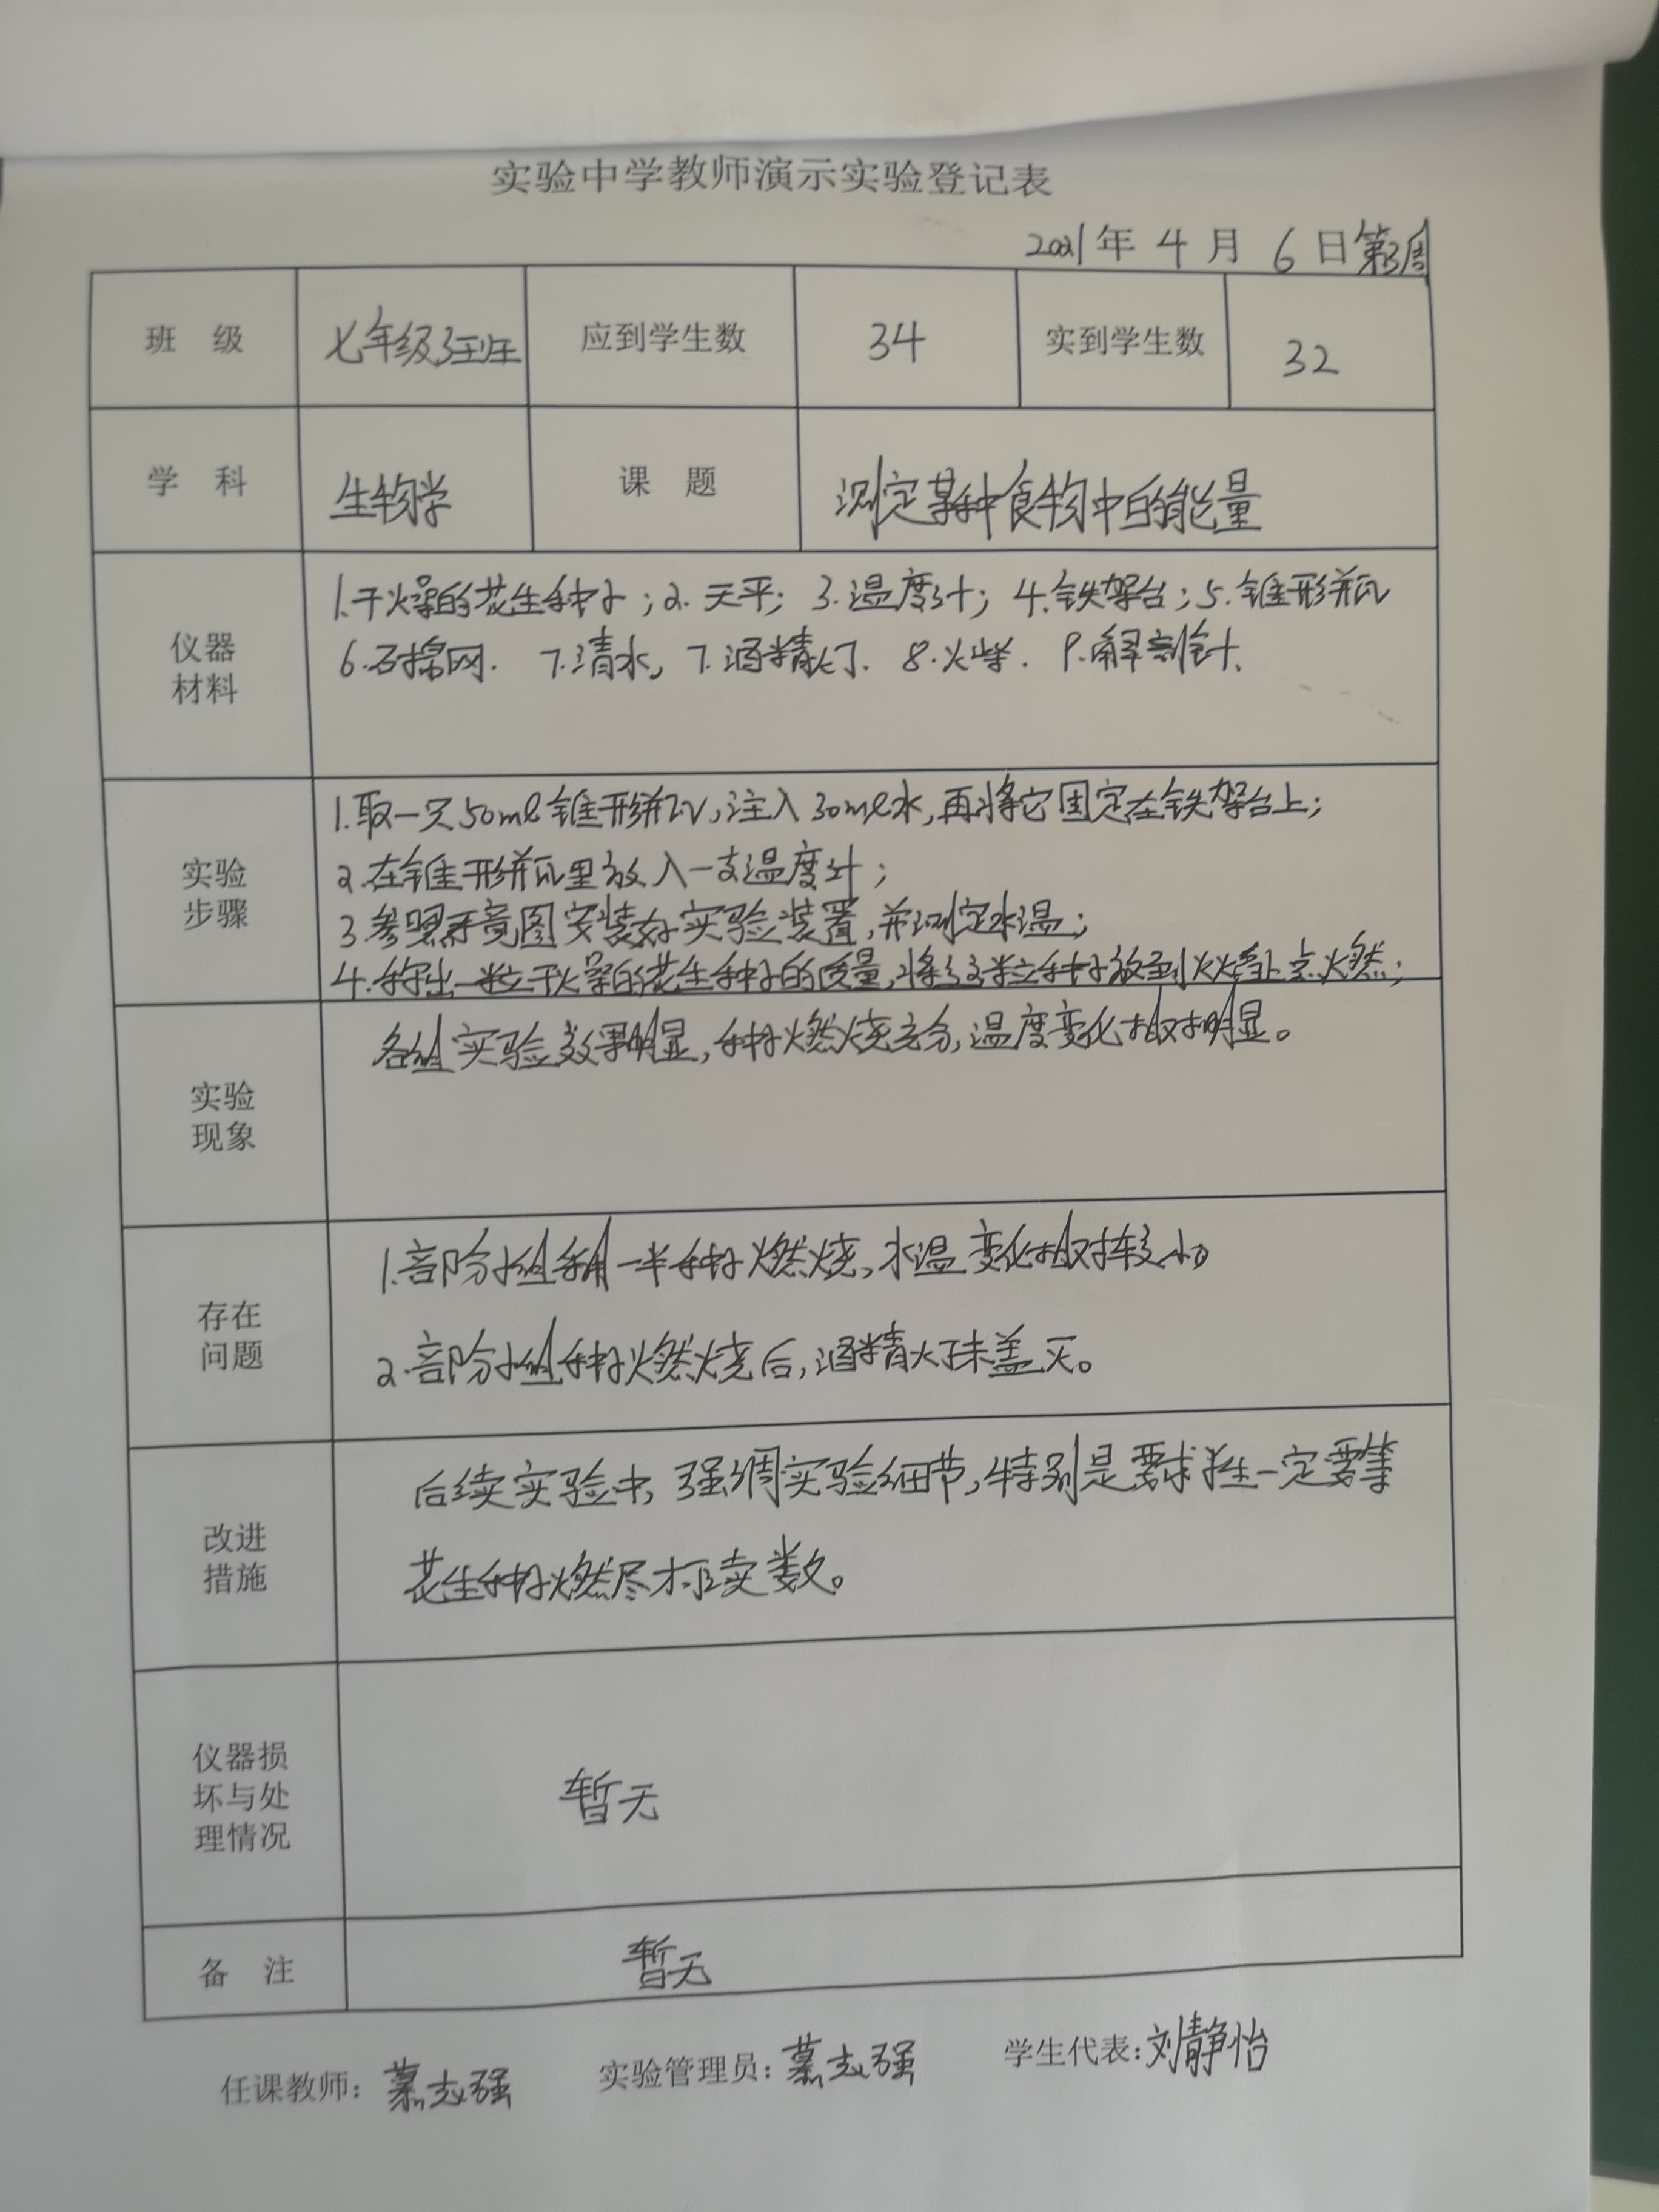 实验中学教师演示实验登记表
2021年 4 月 6 日 第3周
班 级 七年级3班 应到学生数 34 实到学生数 32
学 科 生物学 课 题 测定某种食物中的能量
仪器
材料
1.干燥的花生种子;2.天平;3.温度计;4.铁架台;5.锥形瓶
6.石棉网. 7.清水, 7.酒精灯. 8.火柴. 9.解剖针.
实验
步骤
1.取一只50ml锥形瓶,注入30ml水,再将它固定在铁架台上;
2.在锥形瓶里放入一支温度计;
3.参照示意图安装好实验装置,并测定水温;
4.称出一粒干燥的花生种子的质量,将这粒种子放到火焰上点燃;
实验
现象
各组实验效果明显,种子燃烧充分,温度变化相对明显。
存在
问题
1.部分小组利用一半种子燃烧,水温变化相对较小。
2.部分小组种子燃烧后,酒精灯未盖灭。
改进
措施
后续实验中,强调实验细节,特别是要求学生一定要等
花生种子燃尽才可读数。
仪器损
坏与处
理情况
暂无
备 注 暂无
任课教师: 慕志强 实验管理员: 慕志强 学生代表: 刘静怡